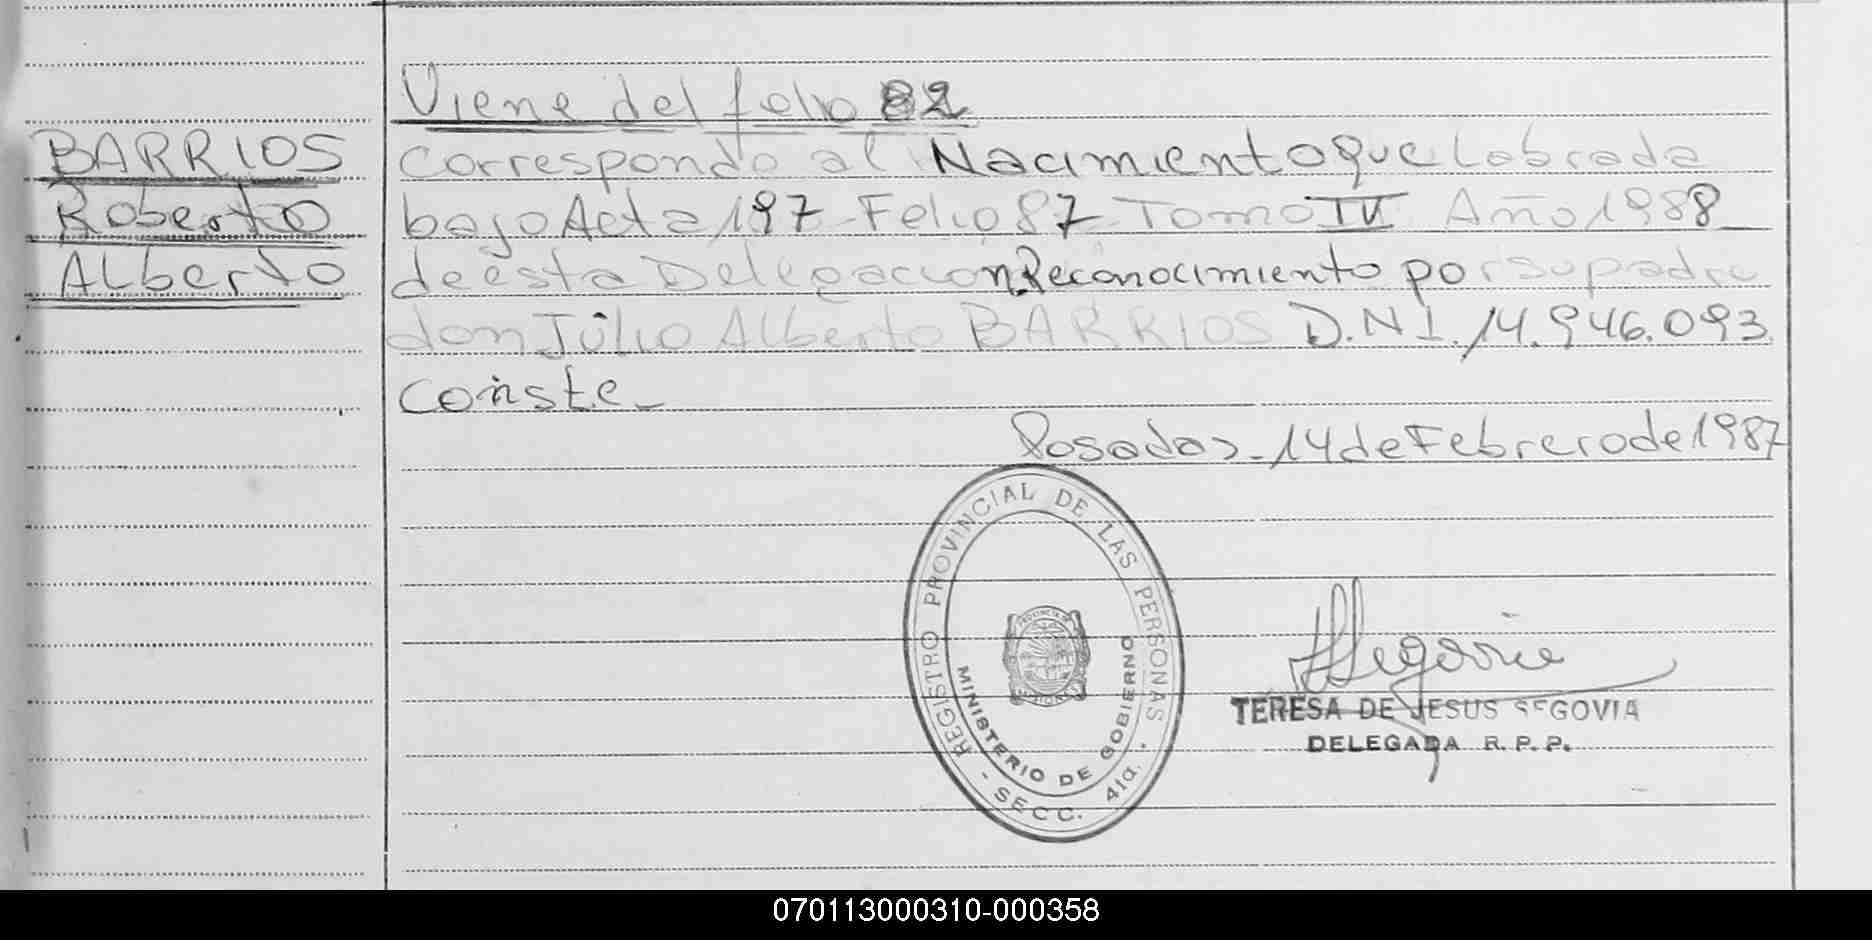 Viene del folio 82
BARRIOS
Roberto
Alberto
Correspondo al Nacimiento que Labrada
bajo Acta 197 - Folio 87 - Tomo IV Año 1988
de esta Delegaccion. Reconocimiento por su padre
don Júlio Alberto BARRIOS D.N.I. 14.946.093.
Conste_
Posadas - 14 de Febrero de 1987
REGISTRO PROVINCIAL DE LAS PERSONAS
- SECC. 41a. -
MINISTERIO DE GOBIERNO
Segovia
TERESA DE JESUS SEGOVIA
DELEGADA R. P. P.
070113000310-000358